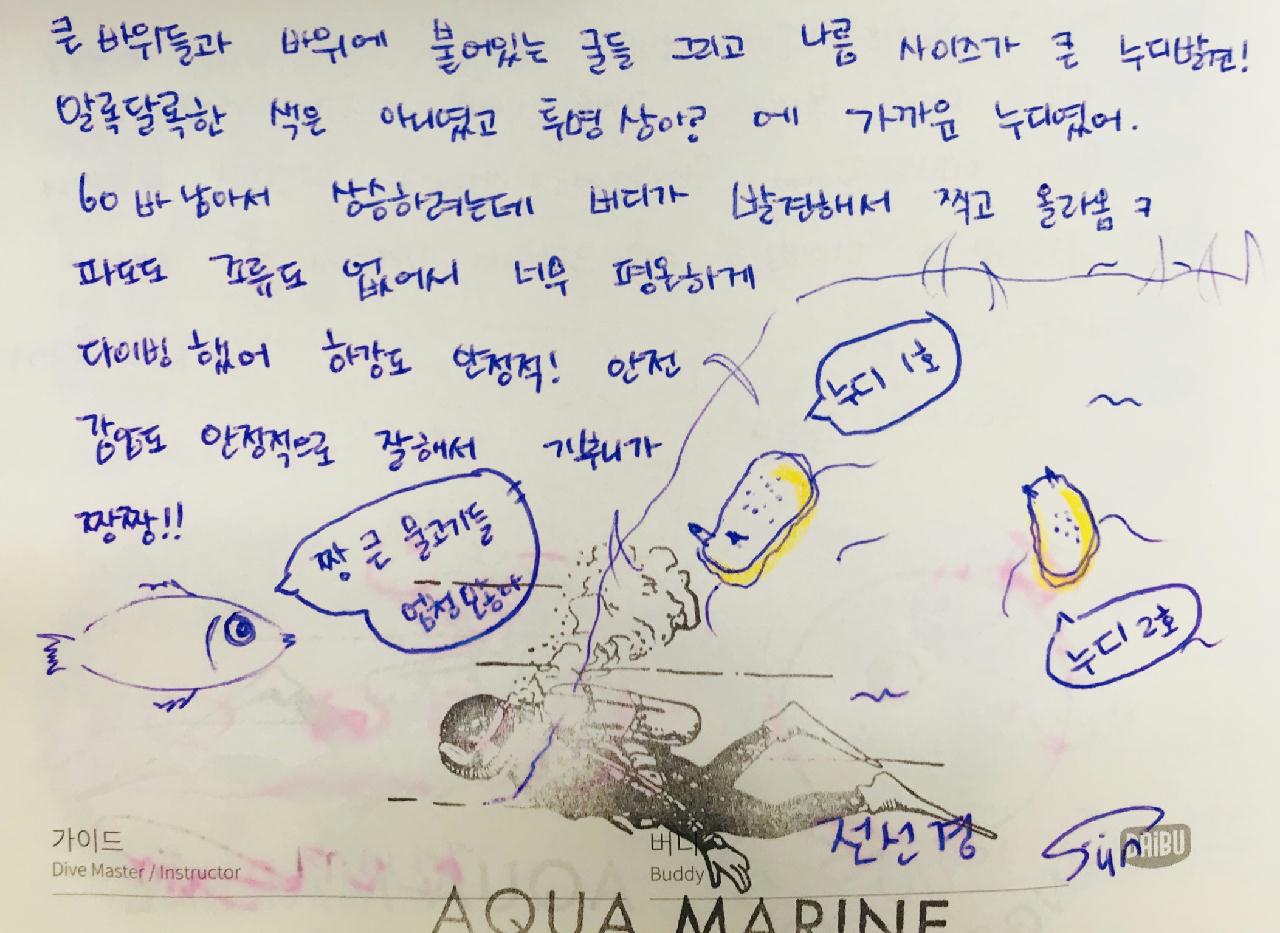 큰 바위들과 바위에 붙어있는 굴들 그리고 나름 사이즈가 큰 누디발견!
알록달록한 색은 아니였고 투명 상아? 에 가까운 누디였어.
60바 남아서 상승하려는데 버디가 발견해서 찍고 올라옴 ㅋ
파도도 조류도 없어서 너무 평온하게
다이빙 했어 하강도 안정적! 안전
감압도 안정적으로 잘해서 기분이가
짱짱!!
누디 1호
짱 큰 물고기들
엄청 많앙
누디 2호
가이드
Dive Master / Instructor
버디
Buddy
전선경
Sun
DAiBU
AQUA MARINE